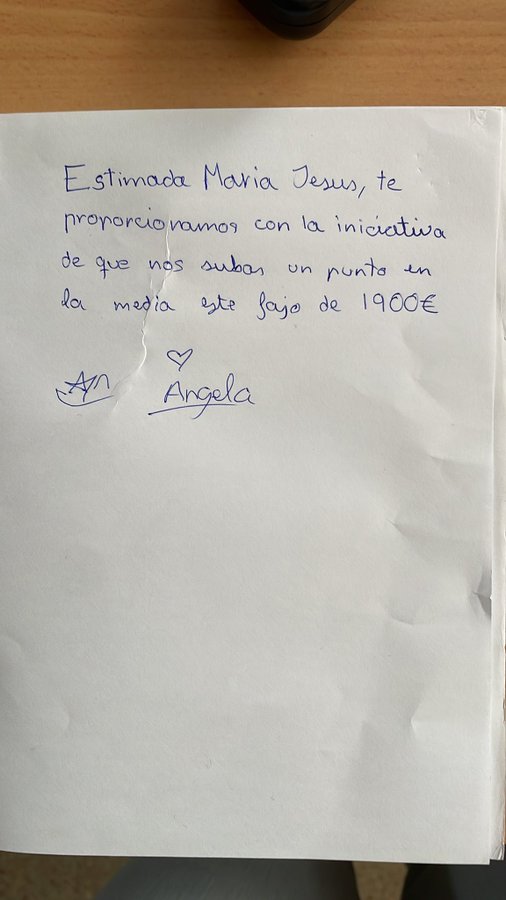 Estimada Maria Jesus, te
proporcionamos con la iniciativa
de que nos subas un punto en
la media este fajo de 1900€
An Angela